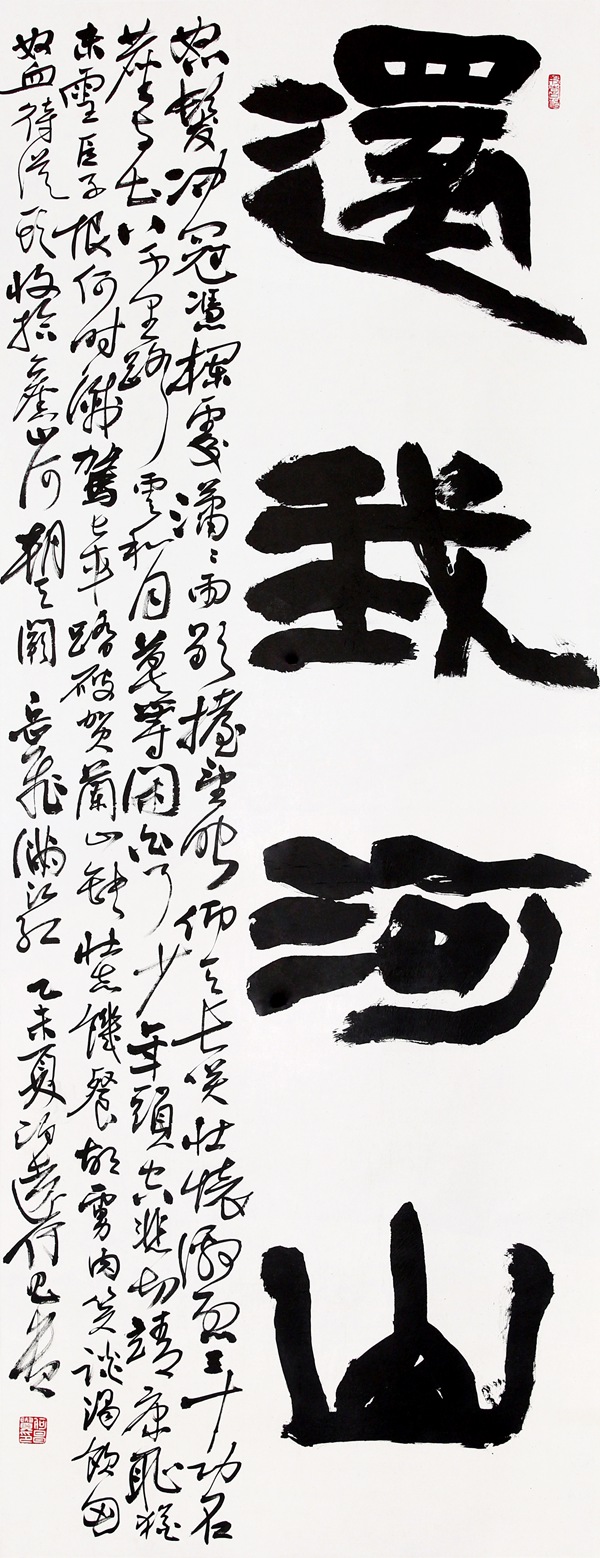 還我河山
怒髮冲冠憑欄處瀟瀟雨歇擡望眼仰天長嘯壯懷激烈三十功名
塵與土八千里路雲和月莫等閑白了少年頭空悲切靖康恥猶
未雪臣子恨何時滅駕長車踏破賀蘭山缺壯志饑餐胡虜肉笑談渴飲匈
奴血待從頭收拾舊山河朝天闕 岳飛滿江紅 乙未夏